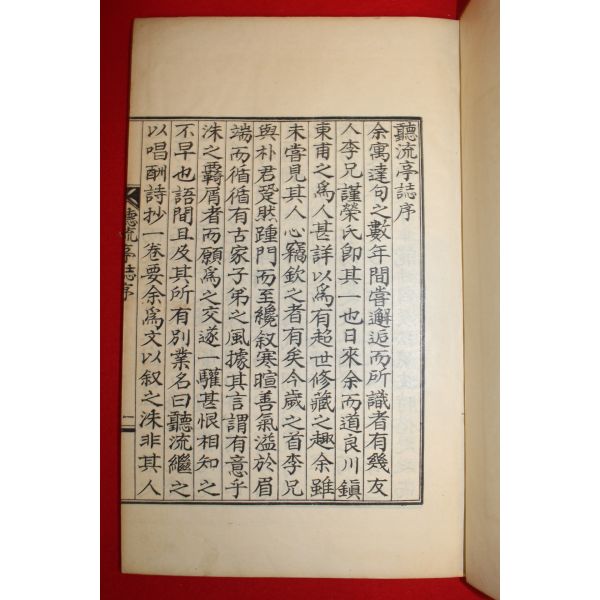 聽流亭誌序
余寓達句之數年間嘗邂逅而所識者有幾友
人李兄謹榮氏卽其一也日來余而道良川鎭
東甫之爲人甚詳以爲有超世修藏之趣余雖
未嘗見其人心竊欽之者有矣今歲之首李兄
與朴君跫然踵門而至纔叙寒暄善氣溢於眉
端而循循有古家子弟之風據其言謂有意乎
洙之覇屑者而願爲之交遂一驩甚恨相知之
不早也語間且及其所有別業名曰聽流繼之
以唱酬詩抄一卷要余爲文以叙之洙非其人
聽流亭序
一